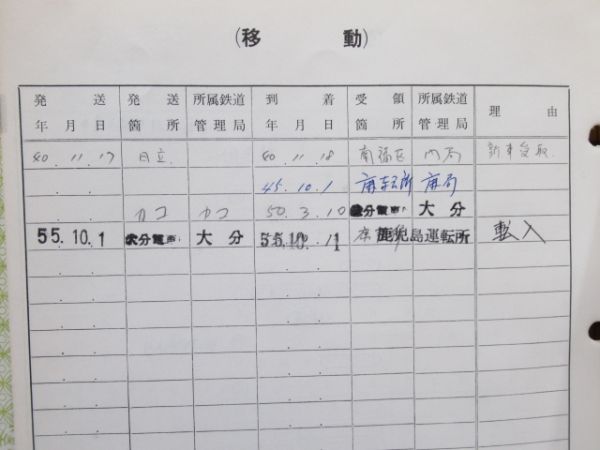 (移 動)
発 送 発 送 所属鉄道 到 着 受 領 所属鉄道 理 由
年 月 日 箇 所 管理局 年 月 日 箇 所 管理局
40. 11. 17 日立 40. 11. 18 南福岡 門局 新車受取
45. 10. 1
カコ カコ 50. 3. 10 分電車 大分
55. 10. 1 大分電車 大分 55. 10. 1 鹿児島運転所 転入